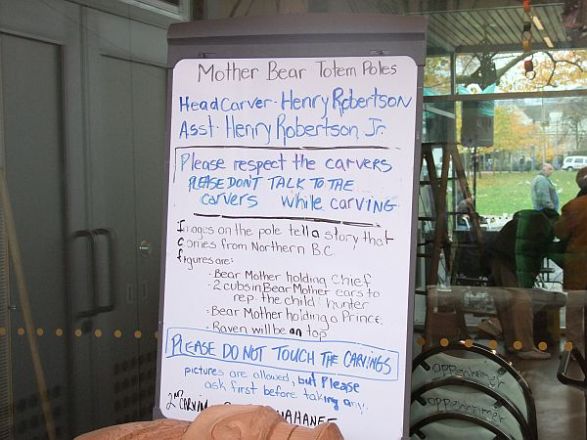 Mother Bear Totem Poles
Head Carver - Henry Robertson
Asst - Henry Robertson Jr.
Please respect the carvers
PLEASE DON'T TALK TO THE
carvers while carving
Images on the pole tell a story that
comes from Northern B.C
figures are:
- Bear Mother holding Chief
- 2 cubs in Bear Mother ears to
rep. the child hunter
- Bear Mother holding a Prince
- Raven will be on top
PLEASE DO NOT TOUCH THE CARVINGS
pictures are allowed, but Please
ask first before taking any.
2nd CARVING
oppenheimer
oppenheimer